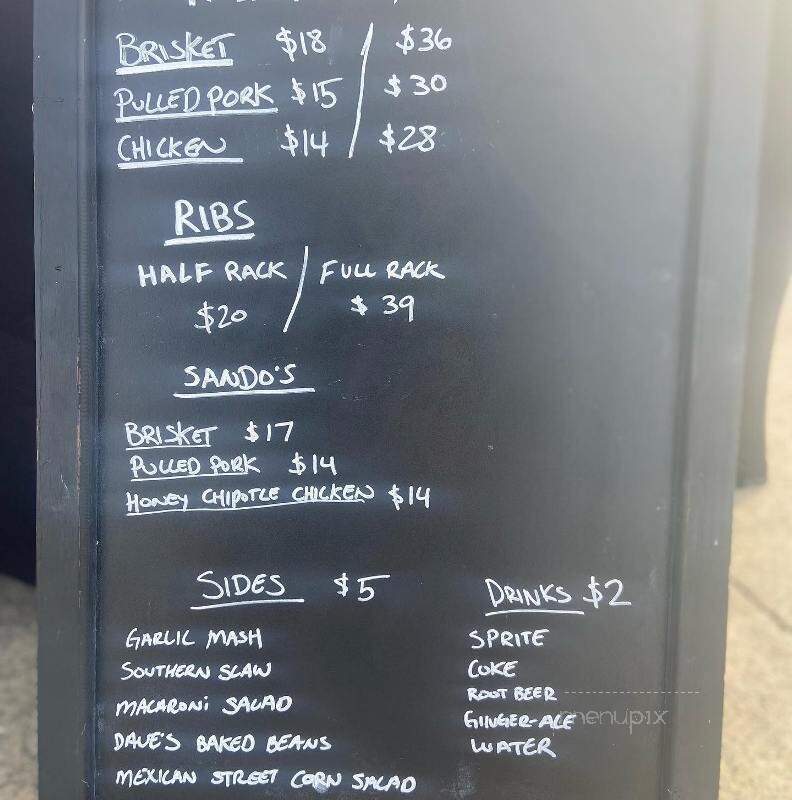 BRISKET $18 / $36
PULLED PORK $15 / $30
CHICKEN $14 / $28
RIBS
HALF RACK / FULL RACK
$20 / $39
SANDO'S
BRISKET $17
PULLED PORK $14
HONEY CHIPOTLE CHICKEN $14
SIDES $5
GARLIC MASH
SOUTHERN SLAW
MACARONI SALAD
DAVE'S BAKED BEANS
MEXICAN STREET CORN SALAD
DRINKS $2
SPRITE
COKE
ROOT BEER
GINGER-ALE
WATER
menupix